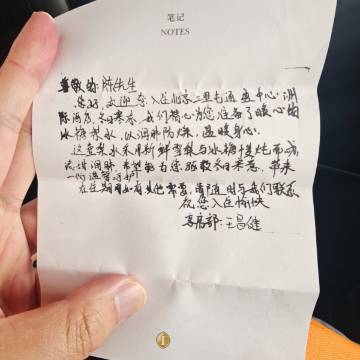 笔记
NOTES
尊敬的:陈先生
您好,欢迎您入住北京三里屯通盈中心洲
际酒店,冬日寒冷,我们精心为您准备了暖心的
冰糖梨水,以润肺防燥,温暖身心。
这壶梨水采用新鲜雪梨与冰糖慢炖而成
清甜润肺,希望能为您驱散冬日寒意,带来
一份温馨呵护
在住期间如有其他需要,请随时与我们联系
祝您入住愉快
客房部:王昌健